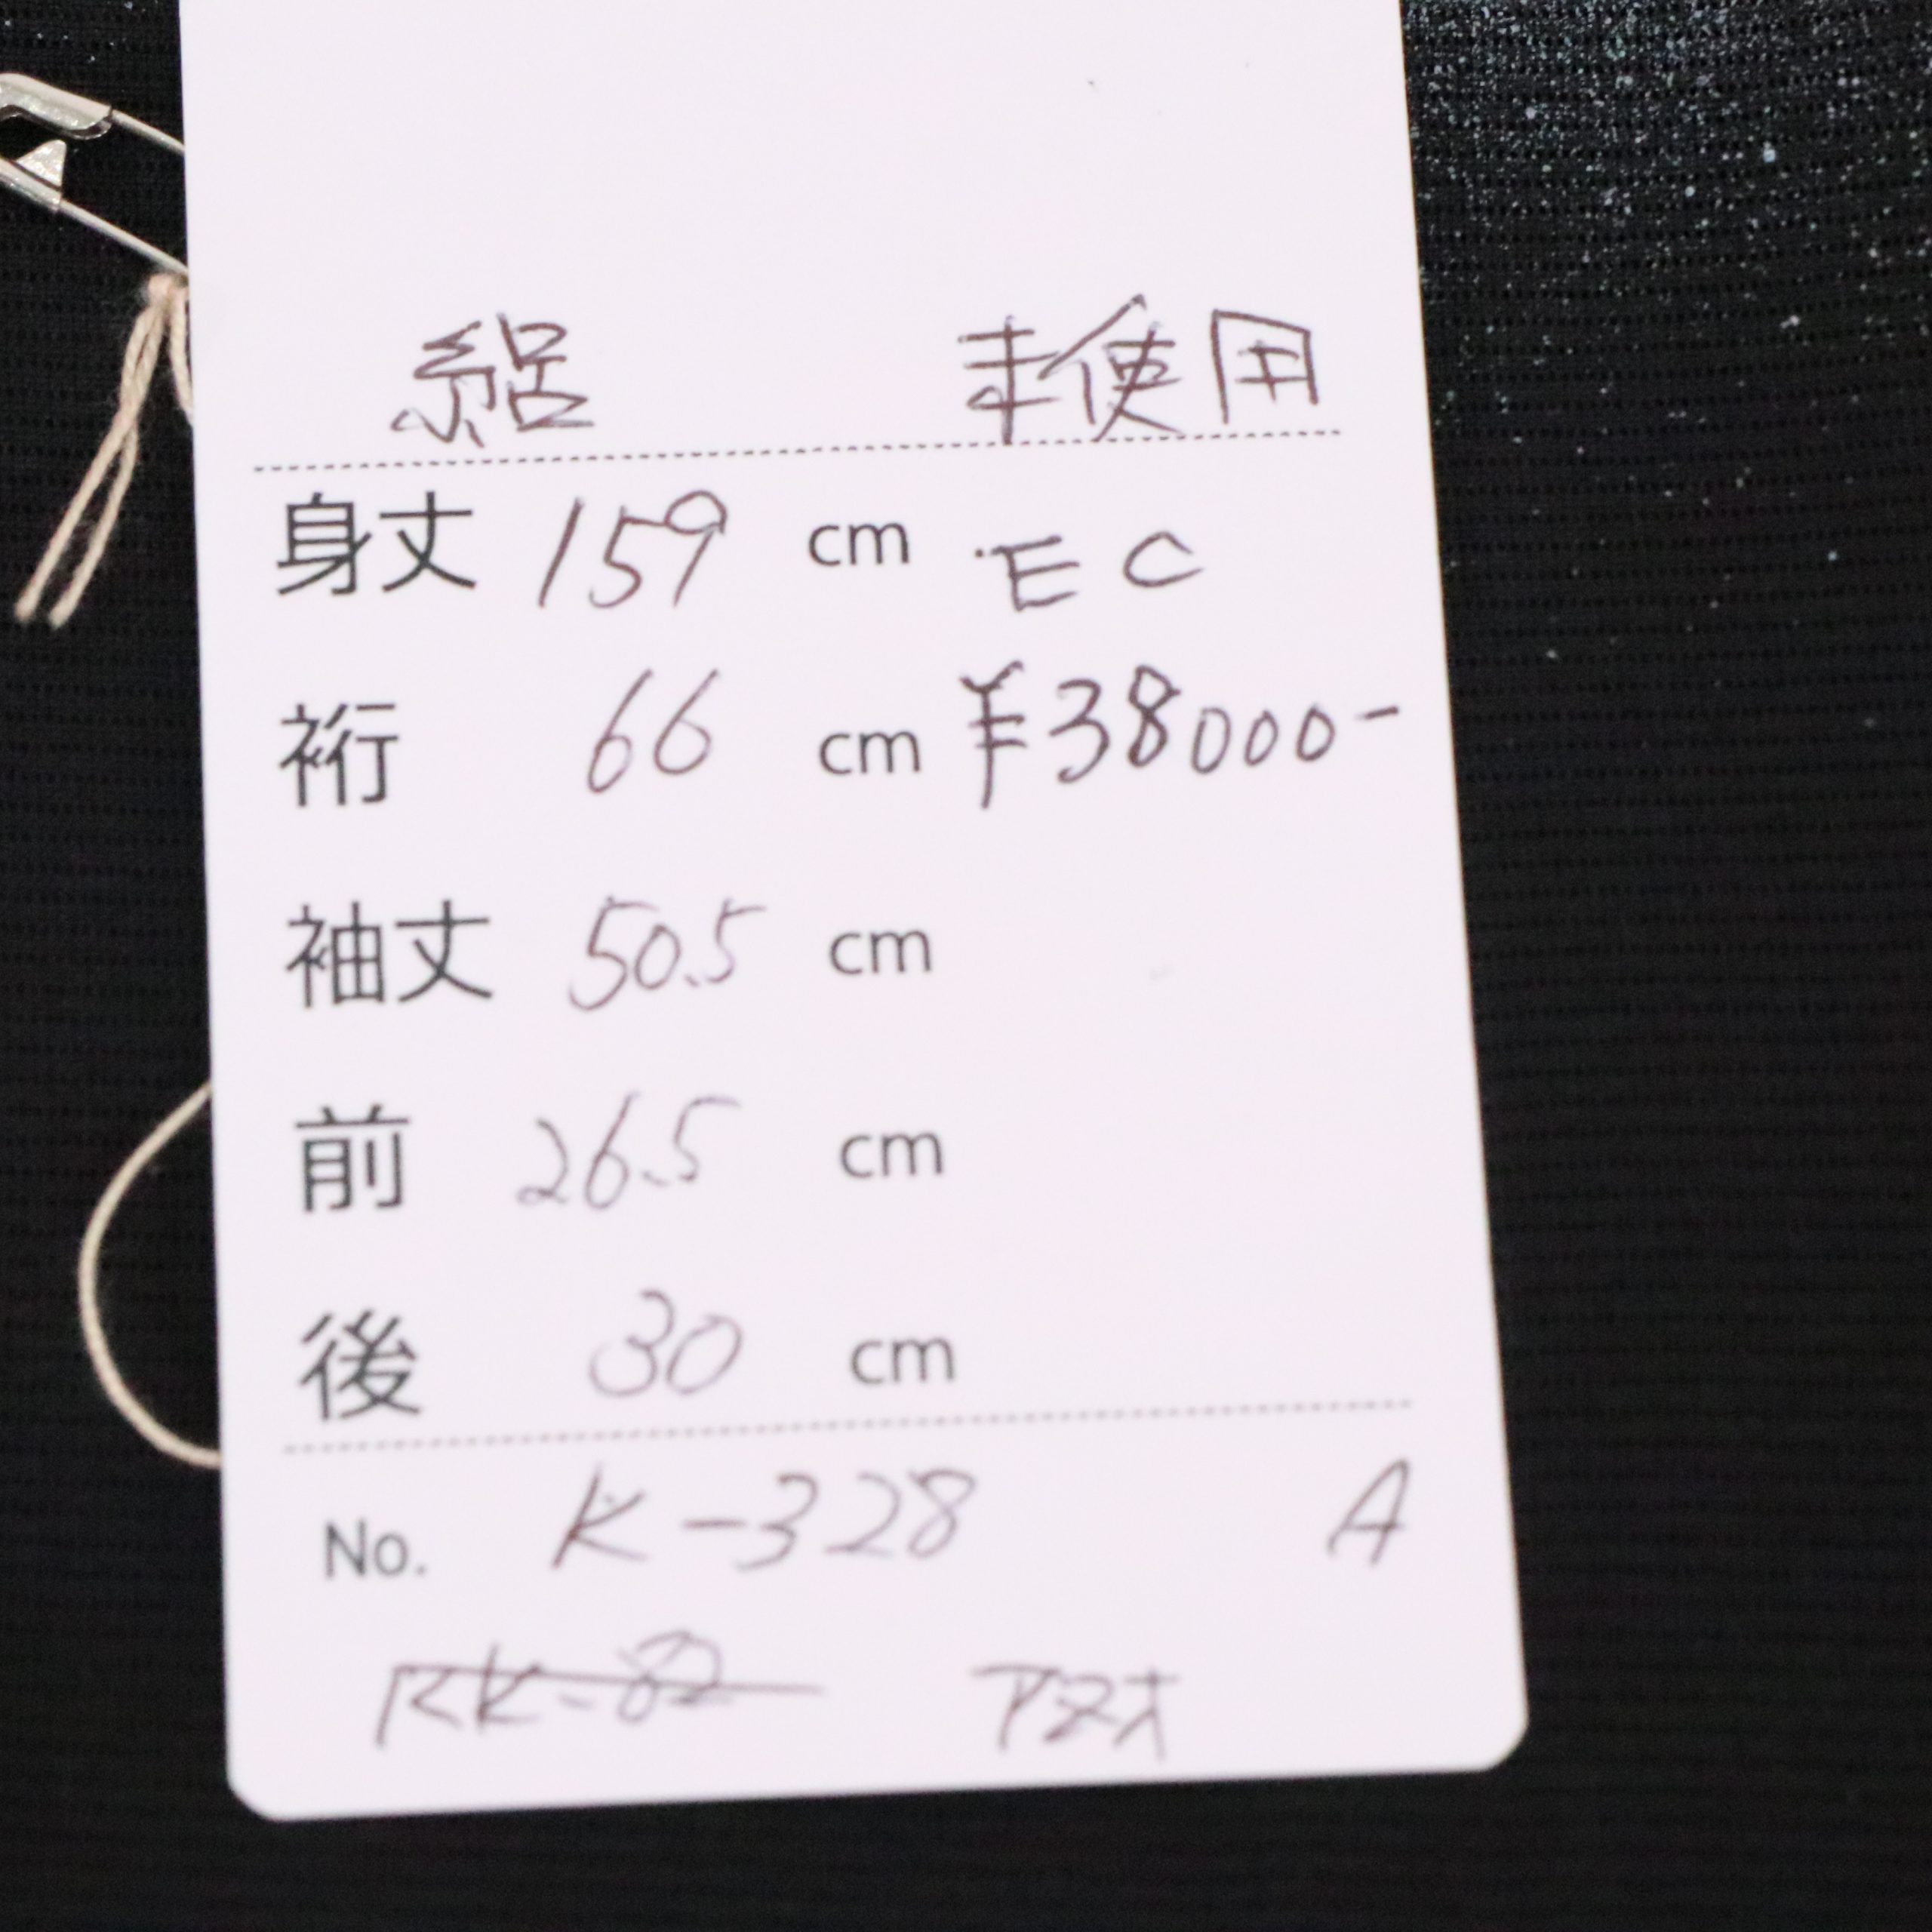 絽 未使用
身丈 159 cm EC
裄 66 cm ¥38000-
袖丈 50.5 cm
前 26.5 cm
後 30 cm
No. K-328 A